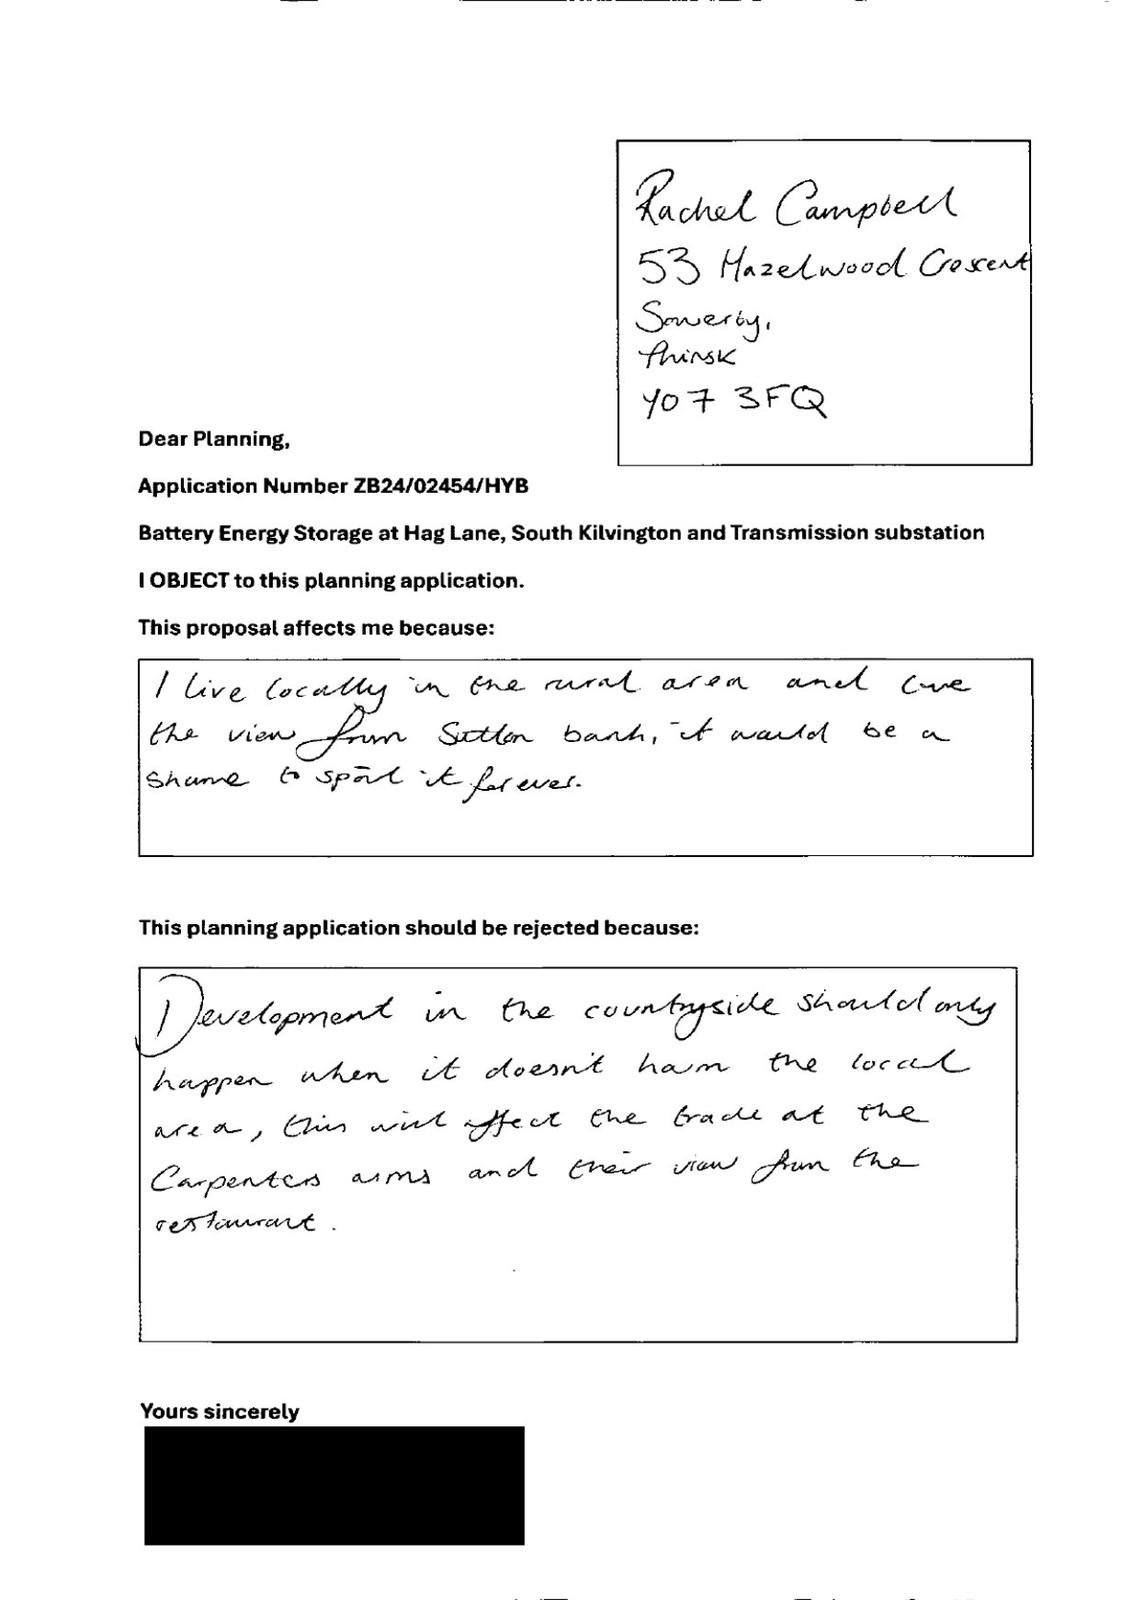 Rachel Campbell
53 Hazelwood Crescent
Sowerby,
Thirsk
YO7 3FQ
Dear Planning,
Application Number ZB24/02454/HYB
Battery Energy Storage at Hag Lane, South Kilvington and Transmission substation
I OBJECT to this planning application.
This proposal affects me because:
I live locally in the rural area and love
the view from Sutton bank, it would be a
shame to spoil it forever.
This planning application should be rejected because:
Development in the countryside should only
happen when it doesn't harm the local
area, this will affect the trade at the
Carpenters arms and their view from the
restaurant.
Yours sincerely